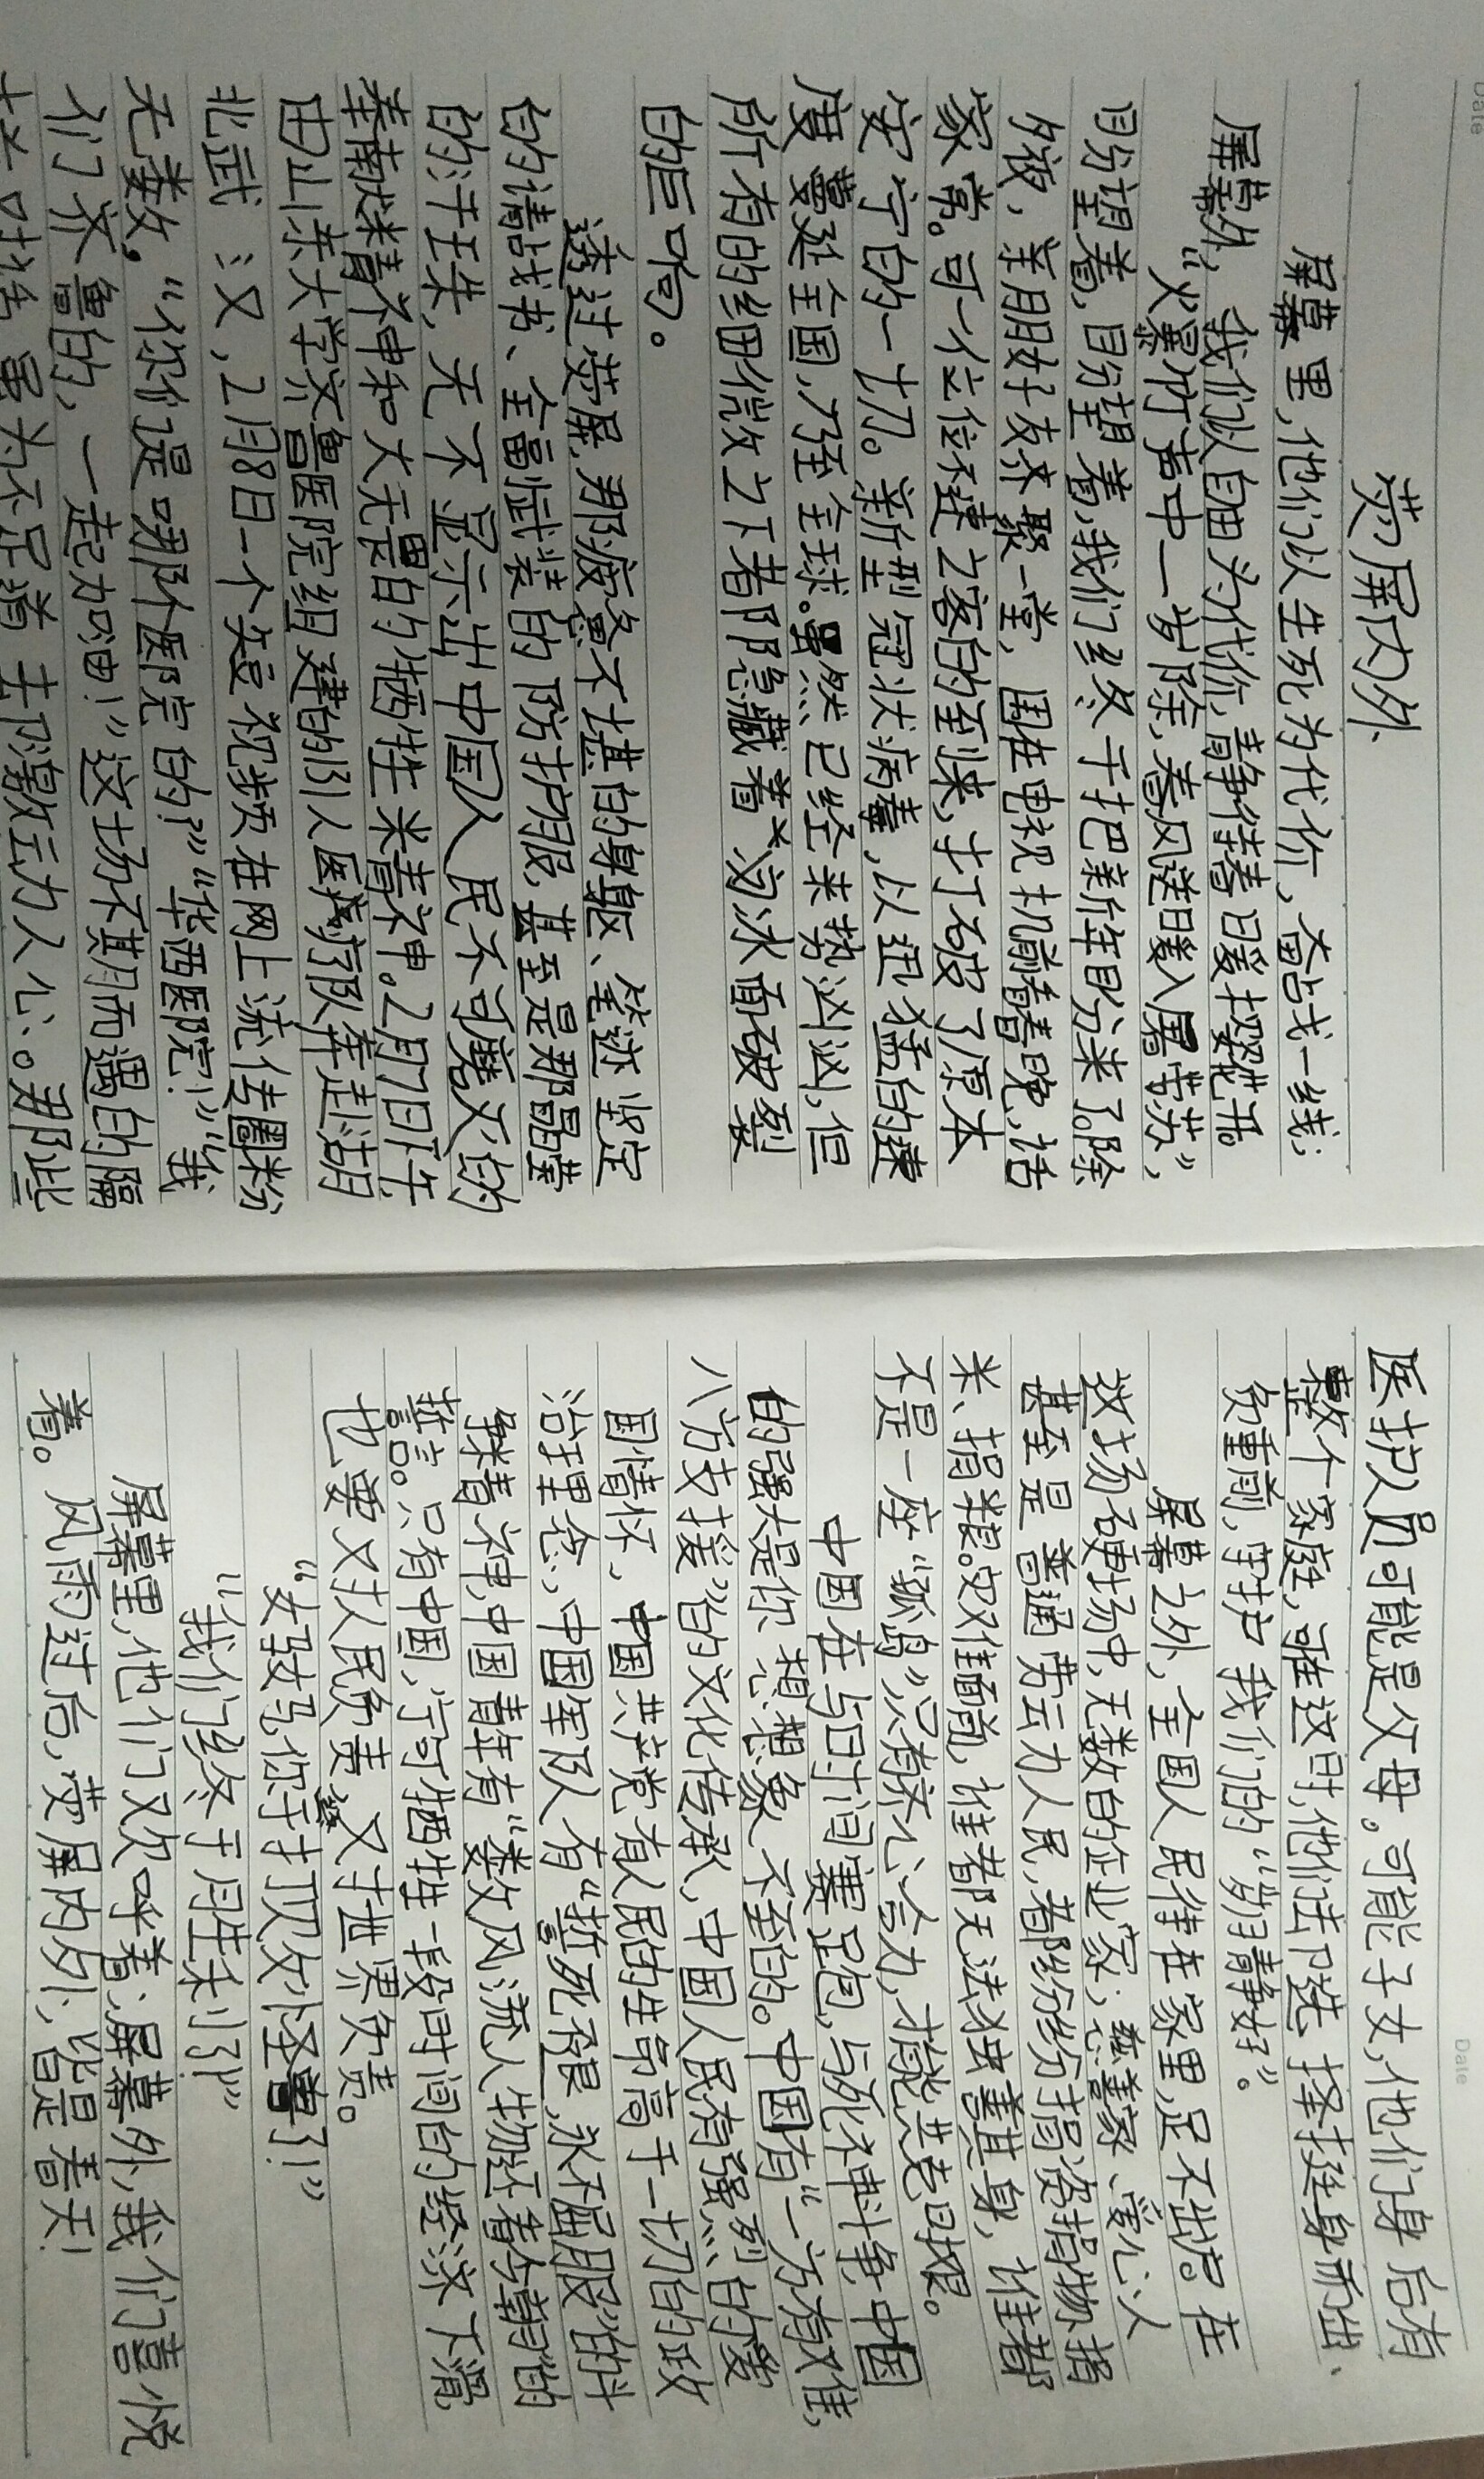 Date
荧屏内外
屏幕里,他们以生死为代价,奋占戈一线;
屏幕外,我们以自由为代价,静待春暖花开。
“火暴竹声中一岁除,春风送暖入屠苏”,
盼望着,盼望着,我们终于把新年盼来了。除
夕夜,亲朋好友来聚一堂,围在电视机前看春晚,话
家常。可一个位不速之客的到来,打破了原本
安宁的一切。新型冠状病毒,以迅猛的速
度蔓延全国,乃至全球。虽然已经来势汹汹,但
所有的细微之下都隐藏着汹冰面破裂
的巨响。
透过荧屏,那疲惫不堪的身躯、笔迹坚定
的请战书、全副武装的防护服,甚至是那晶莹
的汗珠,无不显示出中国人民不可磨灭的
奉献精神和大无畏的牺牲精神。2月7日下午,
由山东大学齐鲁医院组建的131人医疗队奔赴湖
北武汉,2月8日一个短视频在网上流传圈粉
无数。“你们是哪个医院的?”“华西医院!”“我
们齐鲁的,一起加油!”这场不期而遇的隔
去激动人心。那些
Date
医护人员可能是父母。可能子女,他们身后有
整个家庭,可在这时,他们选择挺身而出、
负重前,守护我们的“岁月静好”。
屏幕之外,全国人民待在家里,足不出户。在
这场硬场中,无数的企业家,慈善家、爱心人
甚至是普通劳动人民,都纷纷捐资捐物捐
米、捐粮。灾难面前,谁都无法独善其身,谁都
不是一座“孤岛”只有齐心合力,才能共克时艰。
中国在与时间赛跑,与死神斗争,中国
的强大是你想想象不到的。中国有“一方有难,
八方支援”的文化传承,中国人民有强烈的爱
国情怀、中国共产党有人民的生命高于一切的政
治理念,中国军队有“誓死不退,永不屈服”的斗
争精神,中国青年有“数风流人物还看今朝”的
誓言。只有中国,宁可牺牲一段时间的经济下滑,
也要对人民负责,对世界负责。
“女孩子马,你于打败怪兽了!”
“我们终于胜利了!”
屏幕里,他们欢呼着;屏幕外,我们喜悦
着。风雨过后,荧屏内外,皆是春天!